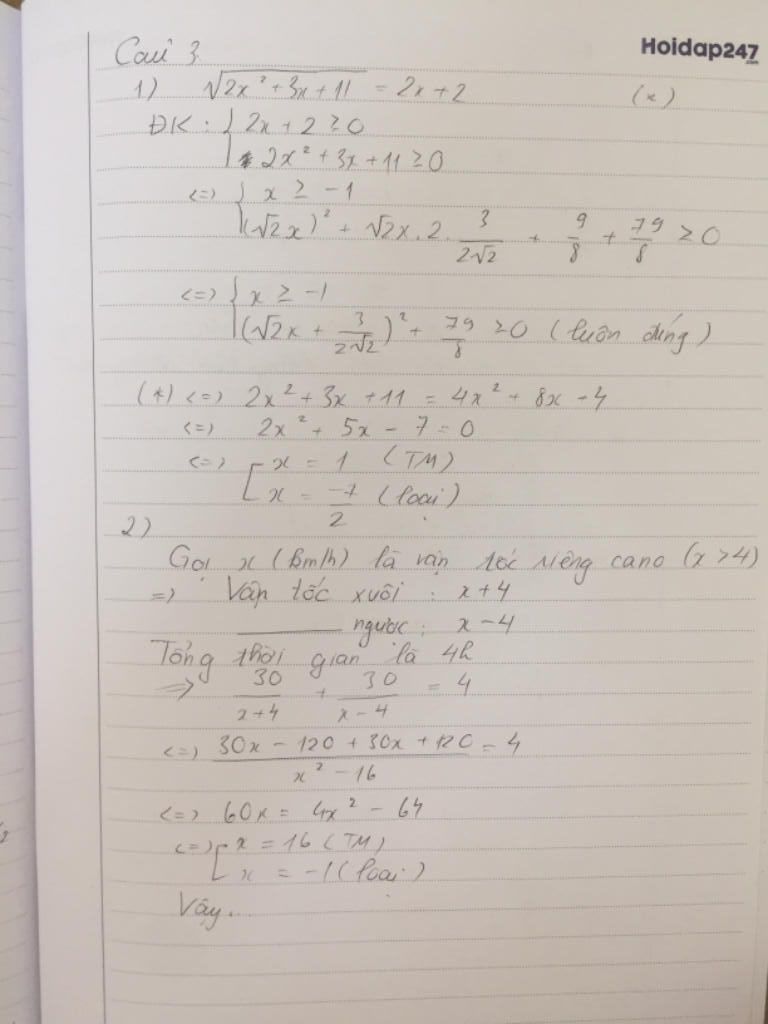 Hoidap247
.com
Câu 3.
1) √(2x² + 3x + 11) = 2x + 2 (*)
ĐK : { 2x + 2 ≥ 0
2x² + 3x + 11 ≥ 0
<=> { x ≥ -1
(√2x)² + √2x . 2 . 3/(2√2) + 9/8 + 79/8 ≥ 0
<=> { x ≥ -1
(√2x + 3/(2√2))² + 79/8 ≥ 0 (luôn đúng)
(*) <=> 2x² + 3x + 11 = 4x² + 8x + 4
<=> 2x² + 5x - 7 = 0
<=> [ x = 1 (TM)
x = -7/2 (loại)
2)
Gọi x (km/h) là vận tốc riêng cano (x > 4)
=> Vận tốc xuôi : x + 4
_____ ngược : x - 4
Tổng thời gian là 4h
=> 30/(x+4) + 30/(x-4) = 4
<=> (30x - 120 + 30x + 120)/(x² - 16) = 4
<=> 60x = 4x² - 64
<=> [ x = 16 (TM)
x = -1 (loại)
Vậy...